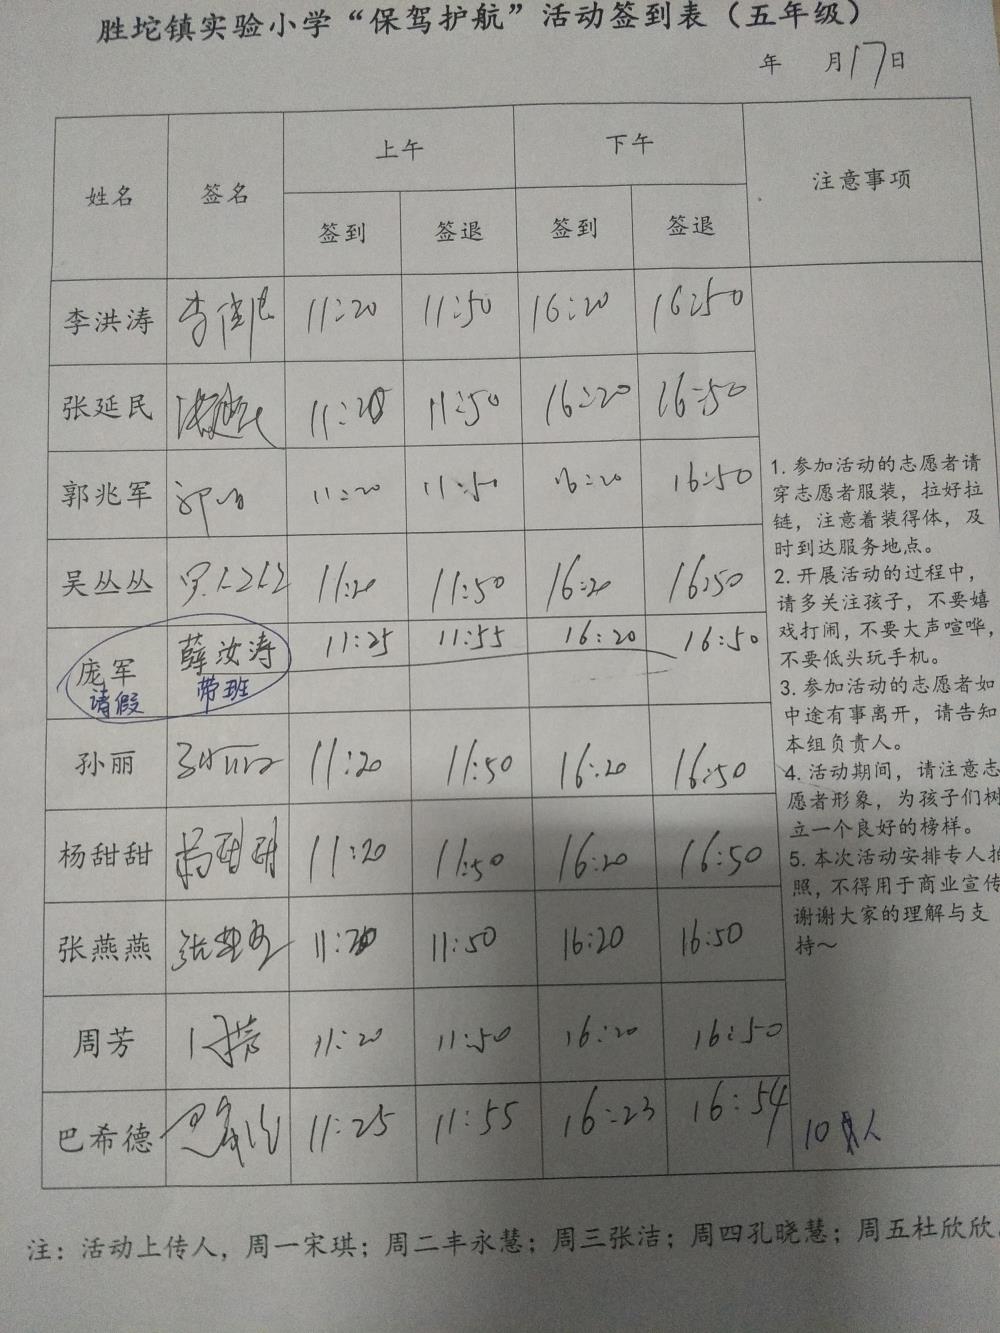 胜坨镇实验小学“保驾护航”活动签到表（五年级）
年 月17日
姓名 签名 上午 下午 注意事项
签到 签退 签到 签退
李洪涛 11:20 11:50 16:20 16:50
张延民 11:20 11:50 16:20 16:50
郭兆军 11:20 11:50 16:20 16:50
吴丛丛 11:20 11:50 16:20 16:50
庞军 薛汝涛 11:25 11:55 16:20 16:50
请假 带班
孙丽 孙丽 11:20 11:50 16:20 16:50
杨甜甜 杨甜甜 11:20 11:50 16:20 16:50
张燕燕 张燕燕 11:20 11:50 16:20 16:50
周芳 周芳 11:20 11:50 16:20 16:50
巴希德 11:25 11:55 16:23 16:54
1. 参加活动的志愿者请
穿志愿者服装，拉好拉
链，注意着装得体，及
时到达服务地点。
2. 开展活动的过程中，
请多关注孩子，不要嬉
戏打闹，不要大声喧哗，
不要低头玩手机。
3. 参加活动的志愿者如
中途有事离开，请告知
本组负责人。
4. 活动期间，请注意志
愿者形象，为孩子们树
立一个良好的榜样。
5. 本次活动安排专人拍
照，不得用于商业宣传
谢谢大家的理解与支
持～
10人
注：活动上传人，周一宋琪；周二丰永慧；周三张洁；周四孔晓慧；周五杜欣欣。